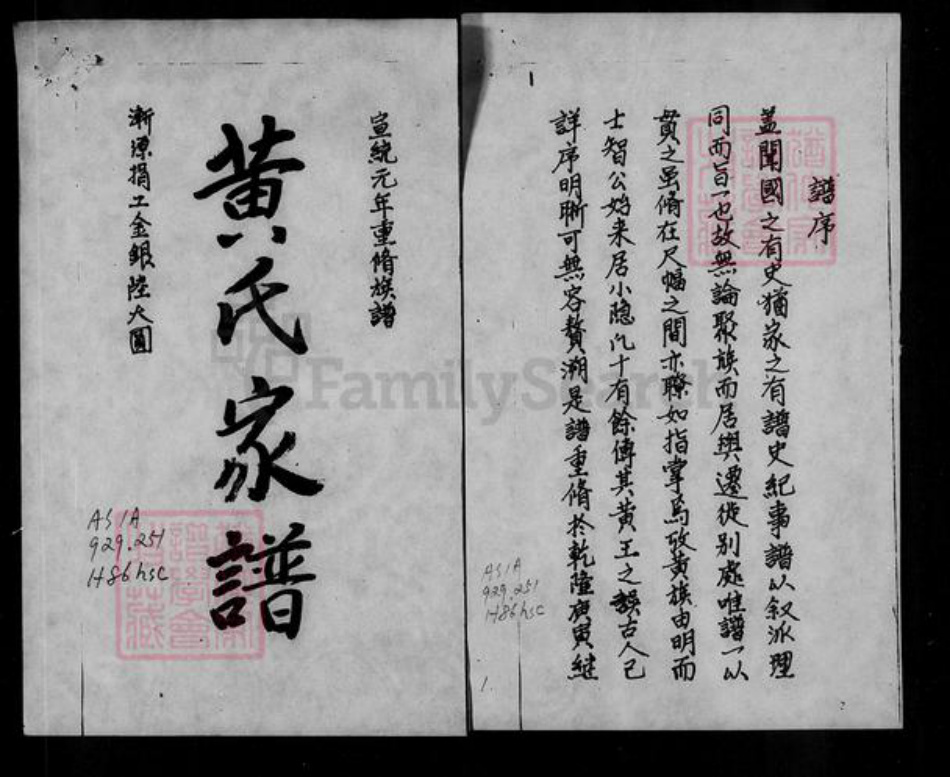 宣統元年重脩族譜
黃氏家譜
漸漂捐工金銀陸大圓
ASIA
929.251
H86hsc
譜序
蓋聞國之有史猶家之有譜史紀事譜以叙派理
同而旨一也故無論聚族而居與遷徙別處唯譜一以
貫之虽脩在尺幅之間亦瞭如指掌焉攷黃族由明而
士智公始来居小隐凢十有餘傳其黃王之誤古人已
詳序明晰可無容贅溯是譜重脩於乾隆庚寅継
ASIA
929.251
H86hsc
1.
FamilySearch